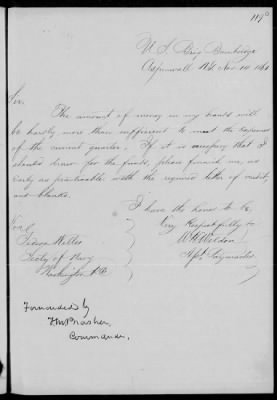 U. S. Brig Bainbridge
Aspinwall N.G. Nov. 14 1861
Sir,
The amount of money in my hands will
be hardly more than sufficient to meet the expenses
of the current quarter. If it is necessary that I
should draw for the funds, please furnish me, as
early as practicable with the required letter of credit,
and blanks.
I have the honor to be,
Very Respectfully &c
Hon. G
Gideon Welles
Secty of Navy
Washington D.C.
W. H. Weldon
Asst Paymaster
Forwarded by
Commander.